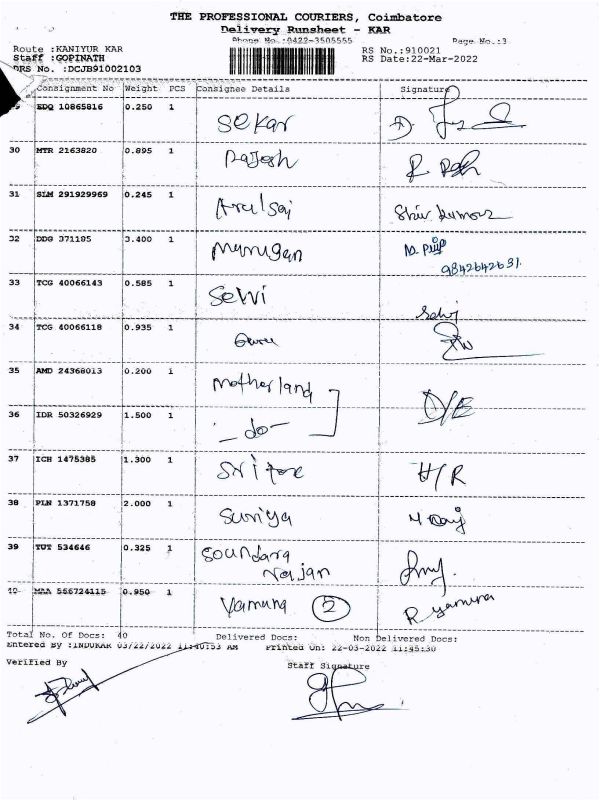 THE PROFESSIONAL COURIERS, Coimbatore
Delivery Runsheet - KAR
Phone No.:0422-3505555 Page No.:3
Route :KANIYUR KAR RS No.:910021
Staff :GOPINATH RS Date:22-Mar-2022
DRS No. :DCJB91002103
Consignment No Weight PCS Consignee Details Signature
EDQ 10865816 0.250 1 Sekar
30 MTR 2163820 0.895 1 Rajesh
31 SLM 291929969 0.245 1 Arulsai Shiv Kumar
32 DDG 371185 3.400 1 Murugan
9842642631
33 TCG 40066143 0.585 1 Selvi Selvi
34 TCG 40066118 0.935 1
35 AMD 24368013 0.200 1 Motherland
36 IDR 50326929 1.500 1 - do - D/E
37 ICH 1475385 1.300 1 H/R
38 PLN 1371758 2.000 1 Suriya
39 TUT 534646 0.325 1 Soundara
Rajan
40 MAA 566724115 0.950 1 Yamuna 2 R Yamuna
Total No. Of Docs: 40 Delivered Docs: Non Delivered Docs:
Entered By :INDUKAR 03/22/2022 11:40:53 AM Printed On: 22-03-2022 11:45:30
Verified By Staff Signature